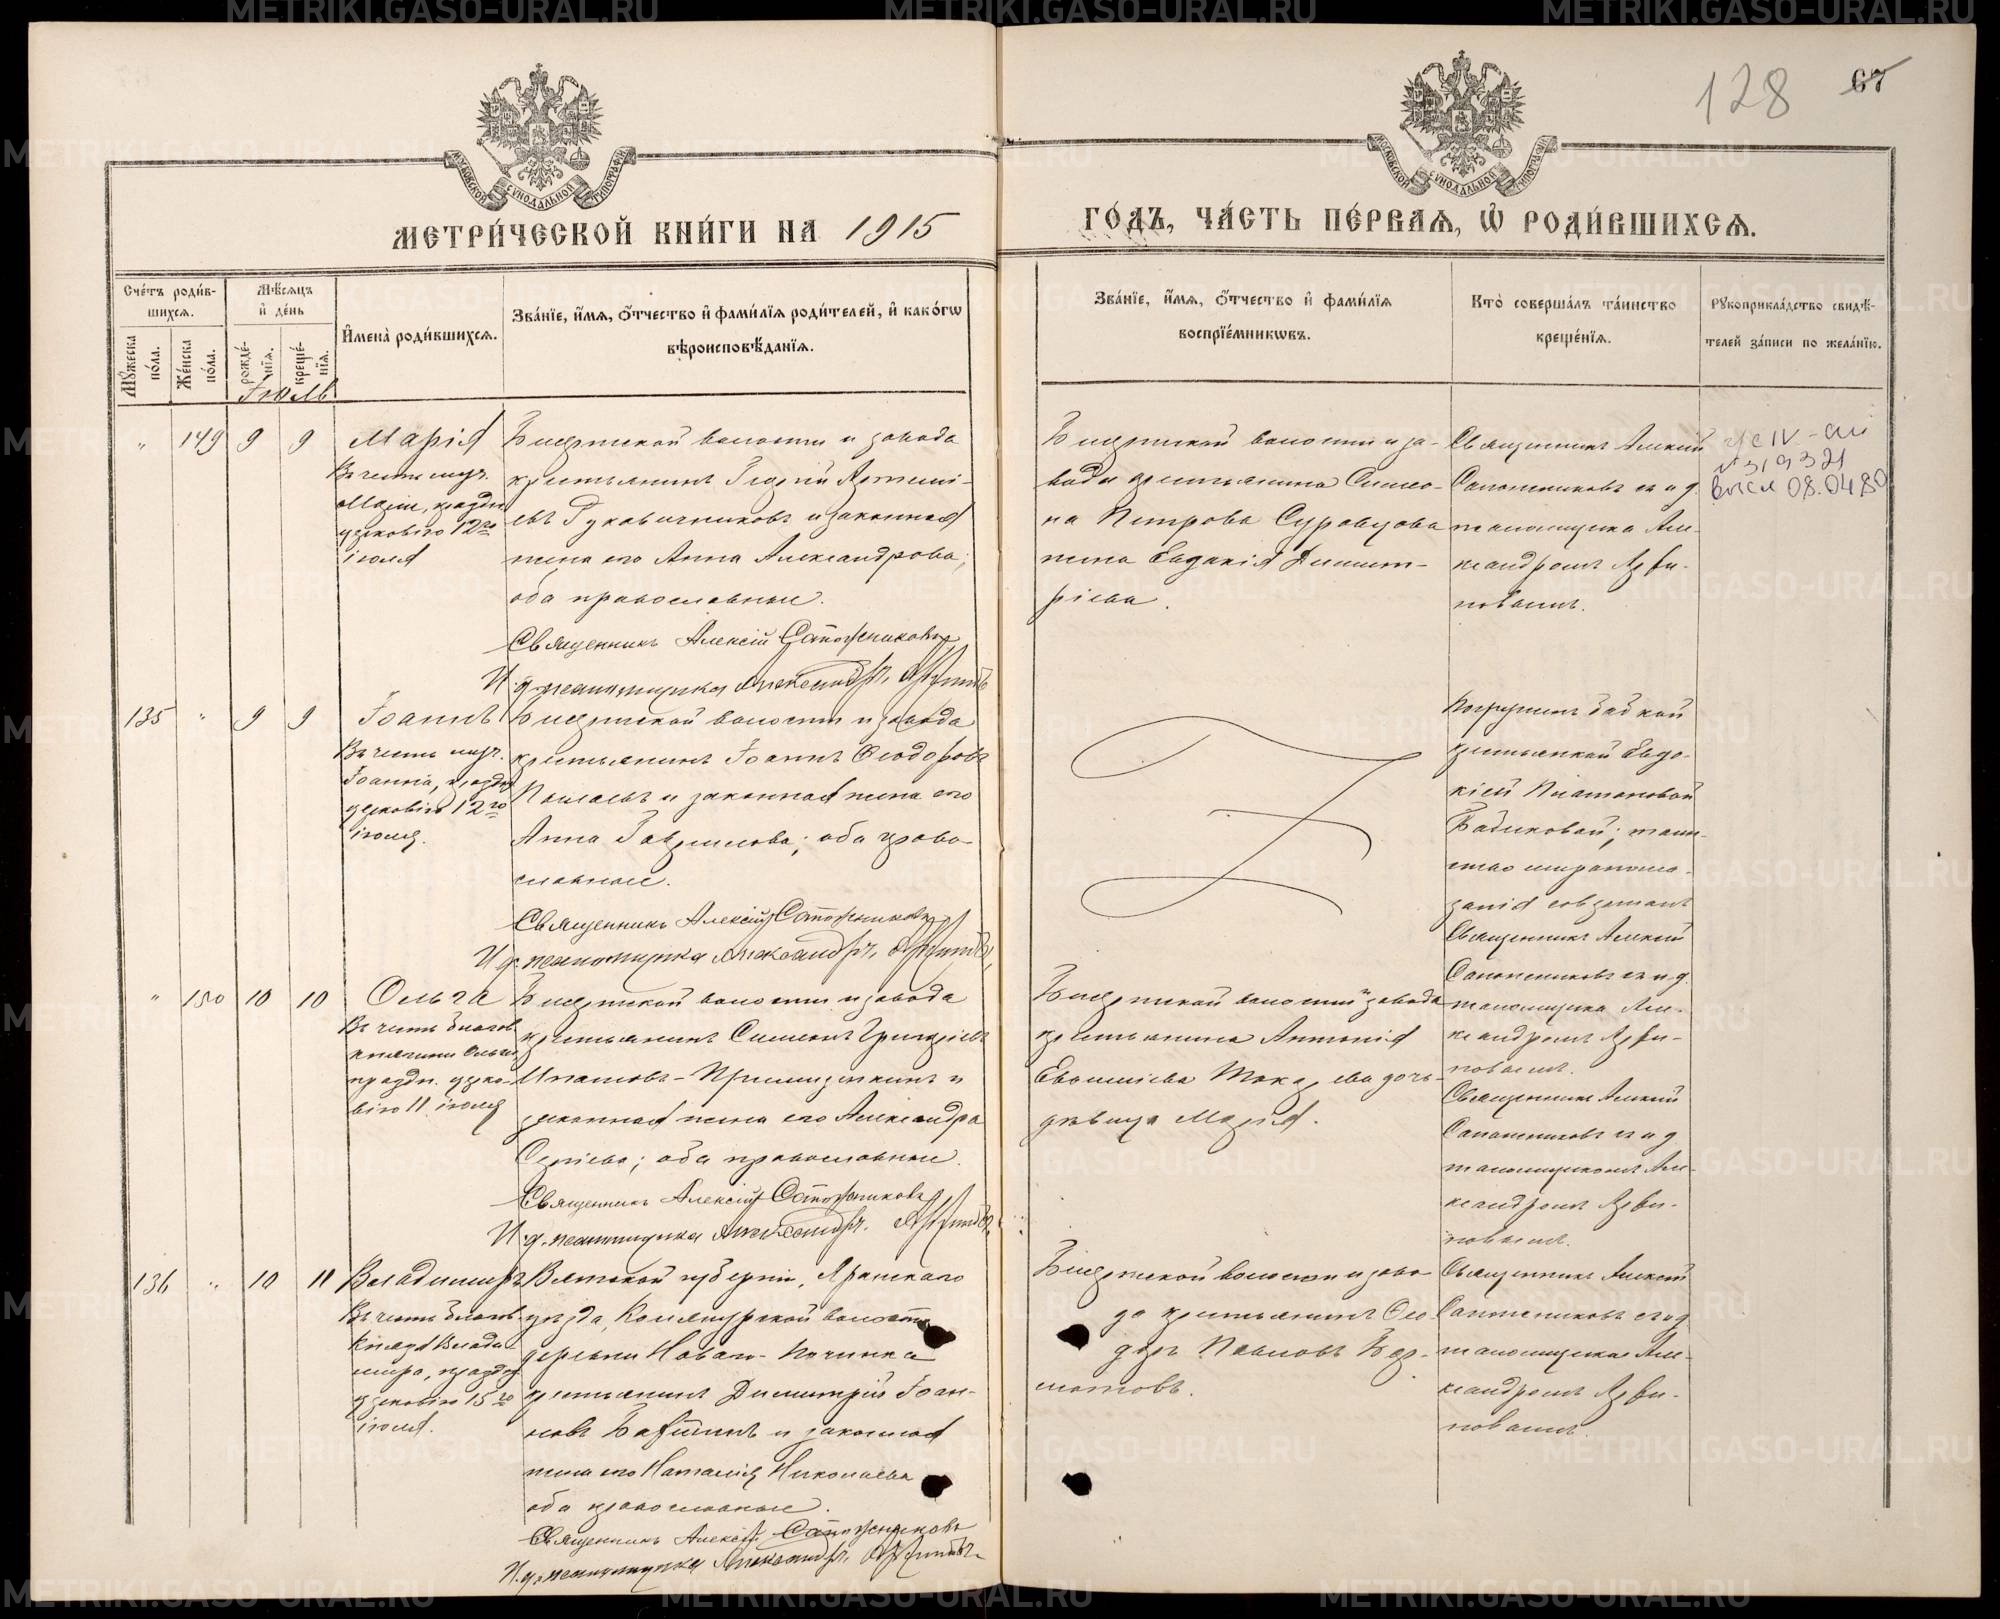 МЕТРИ́ЧЕСКОЙ КНИ́ГИ НА 1915
ГО́ДЪ, ЧА́СТЬ ПЕ́РВАЯ, Ѡ҆ РОДИ́ВШИХСЯ.
128
67
Сче́тъ роди́вшихся.
Му́жеска по́ла.
Же́нска по́ла.
Мѣ́сяцъ и҆ де́нь
рожде́нїя.
креще́нїя.
И҆мена̀ роди́вшихся.
Зва́нїе, и҆́мя, ѻ҆́тчество и҆ фами́лїя роди́телей, и҆ како́гѡ
вѣроисповѣ́данїя.
Зва́нїе, и҆́мя, ѻ҆́тчество и҆ фами́лїя
воспрїе́мникѡвъ.
Кто̀ соверша́лъ та́инство
креще́нїя.
Рꙋкоприкла́дство свидѣ́-
телей за́писи по жела́нїю.
Іюль
" 149 9 9
Марія
Въ честь муч.
Маріи, праздн.
церковію 12го
іюля
Бисертской волости и завода
крестьянинъ Георгій Артемі-
евъ Рукавичниковъ и законная
жена его Анна Александрова;
оба православные.
Священникъ Алексій Сапожниковъ
И. д. псаломщика Александръ
Бисертской волости и за-
вода крестьянина Симео-
на Петрова Суровцова
жена Евдокія Димит-
ріева.
Священникъ Алексій
Сапожниковъ съ и. д.
псаломщика Але-
ксандромъ
№ 319321
08.04.80
135 " 9 9
Іоаннъ
Въ честь муч.
Іоанна, праздн.
церковію 12го
іюля.
Бисертской волости и завода
крестьянинъ Іоаннъ Ѳеодоровъ
и законная жена его
Анна Гаврилова; оба право-
славные.
Священникъ Алексій Сапожниковъ
И. д. псаломщика Александръ
Погружен бабкой
крестьянкой Евдо-
кіей Платоновой
Бабиковой; таин-
ство миропома-
занія совершалъ
Священникъ Алексій
Сапожниковъ съ и. д.
псаломщика Але-
ксандромъ
" 150 10 10
Ольга
Въ честь благов.
княгини Ольги,
праздн. церко-
вію 11 іюля
Бисертской волости и завода
крестьянинъ Симеонъ Григоріевъ
Ипатовъ-
законная жена его Александра
Сергіева; оба православные.
Священникъ Алексій Сапожниковъ
И. д. псаломщика Александръ
Бисертской волости и завода
крестьянина Антонія
Токарева дочь
дѣвица Марія.
Священникъ Алексій
Сапожниковъ съ и. д.
псаломщикомъ Але-
ксандромъ
136 " 10 11
Владимиръ
Въ честь благов.
Князя Влади-
мира, праздн.
церковію 15го
іюля.
Вятской губерніи, Яранскаго
уѣзда, волости
деревни Новаго-Починка
крестьянинъ Димитрій Іоан-
новъ и законная
жена его Наталія Николаева
оба православные.
Священникъ Алексій Сапожниковъ
И. д. псаломщика Александръ
Бисертской волости и заво-
да крестьянинъ Ѳео-
доръ Павловъ
Священникъ Алексій
Сапожниковъ съ и. д.
псаломщика Але-
ксандромъ